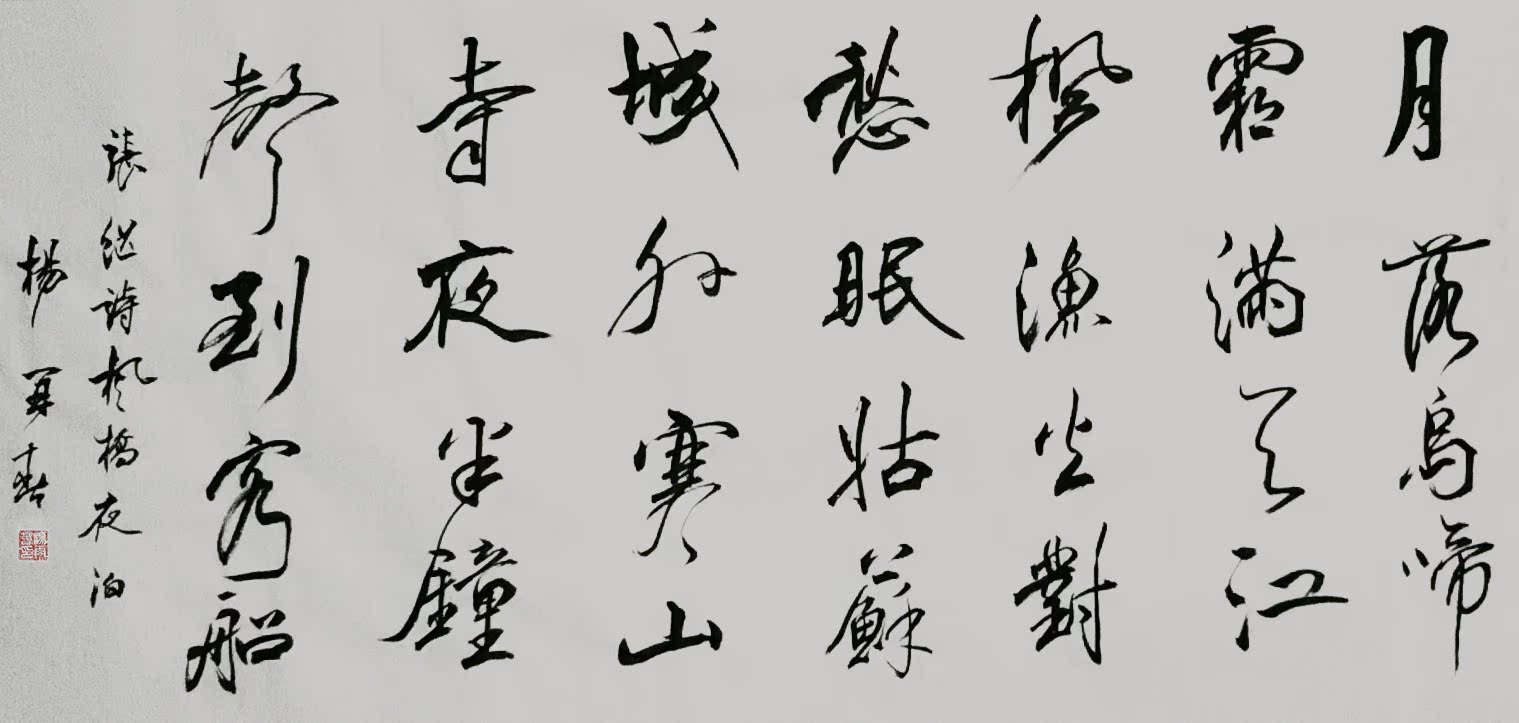 月落烏啼
霜滿天江
楓漁火對
愁眠姑蘇
城外寒山
寺夜半鐘
聲到客船
張继詩楓橋夜泊
楊再春